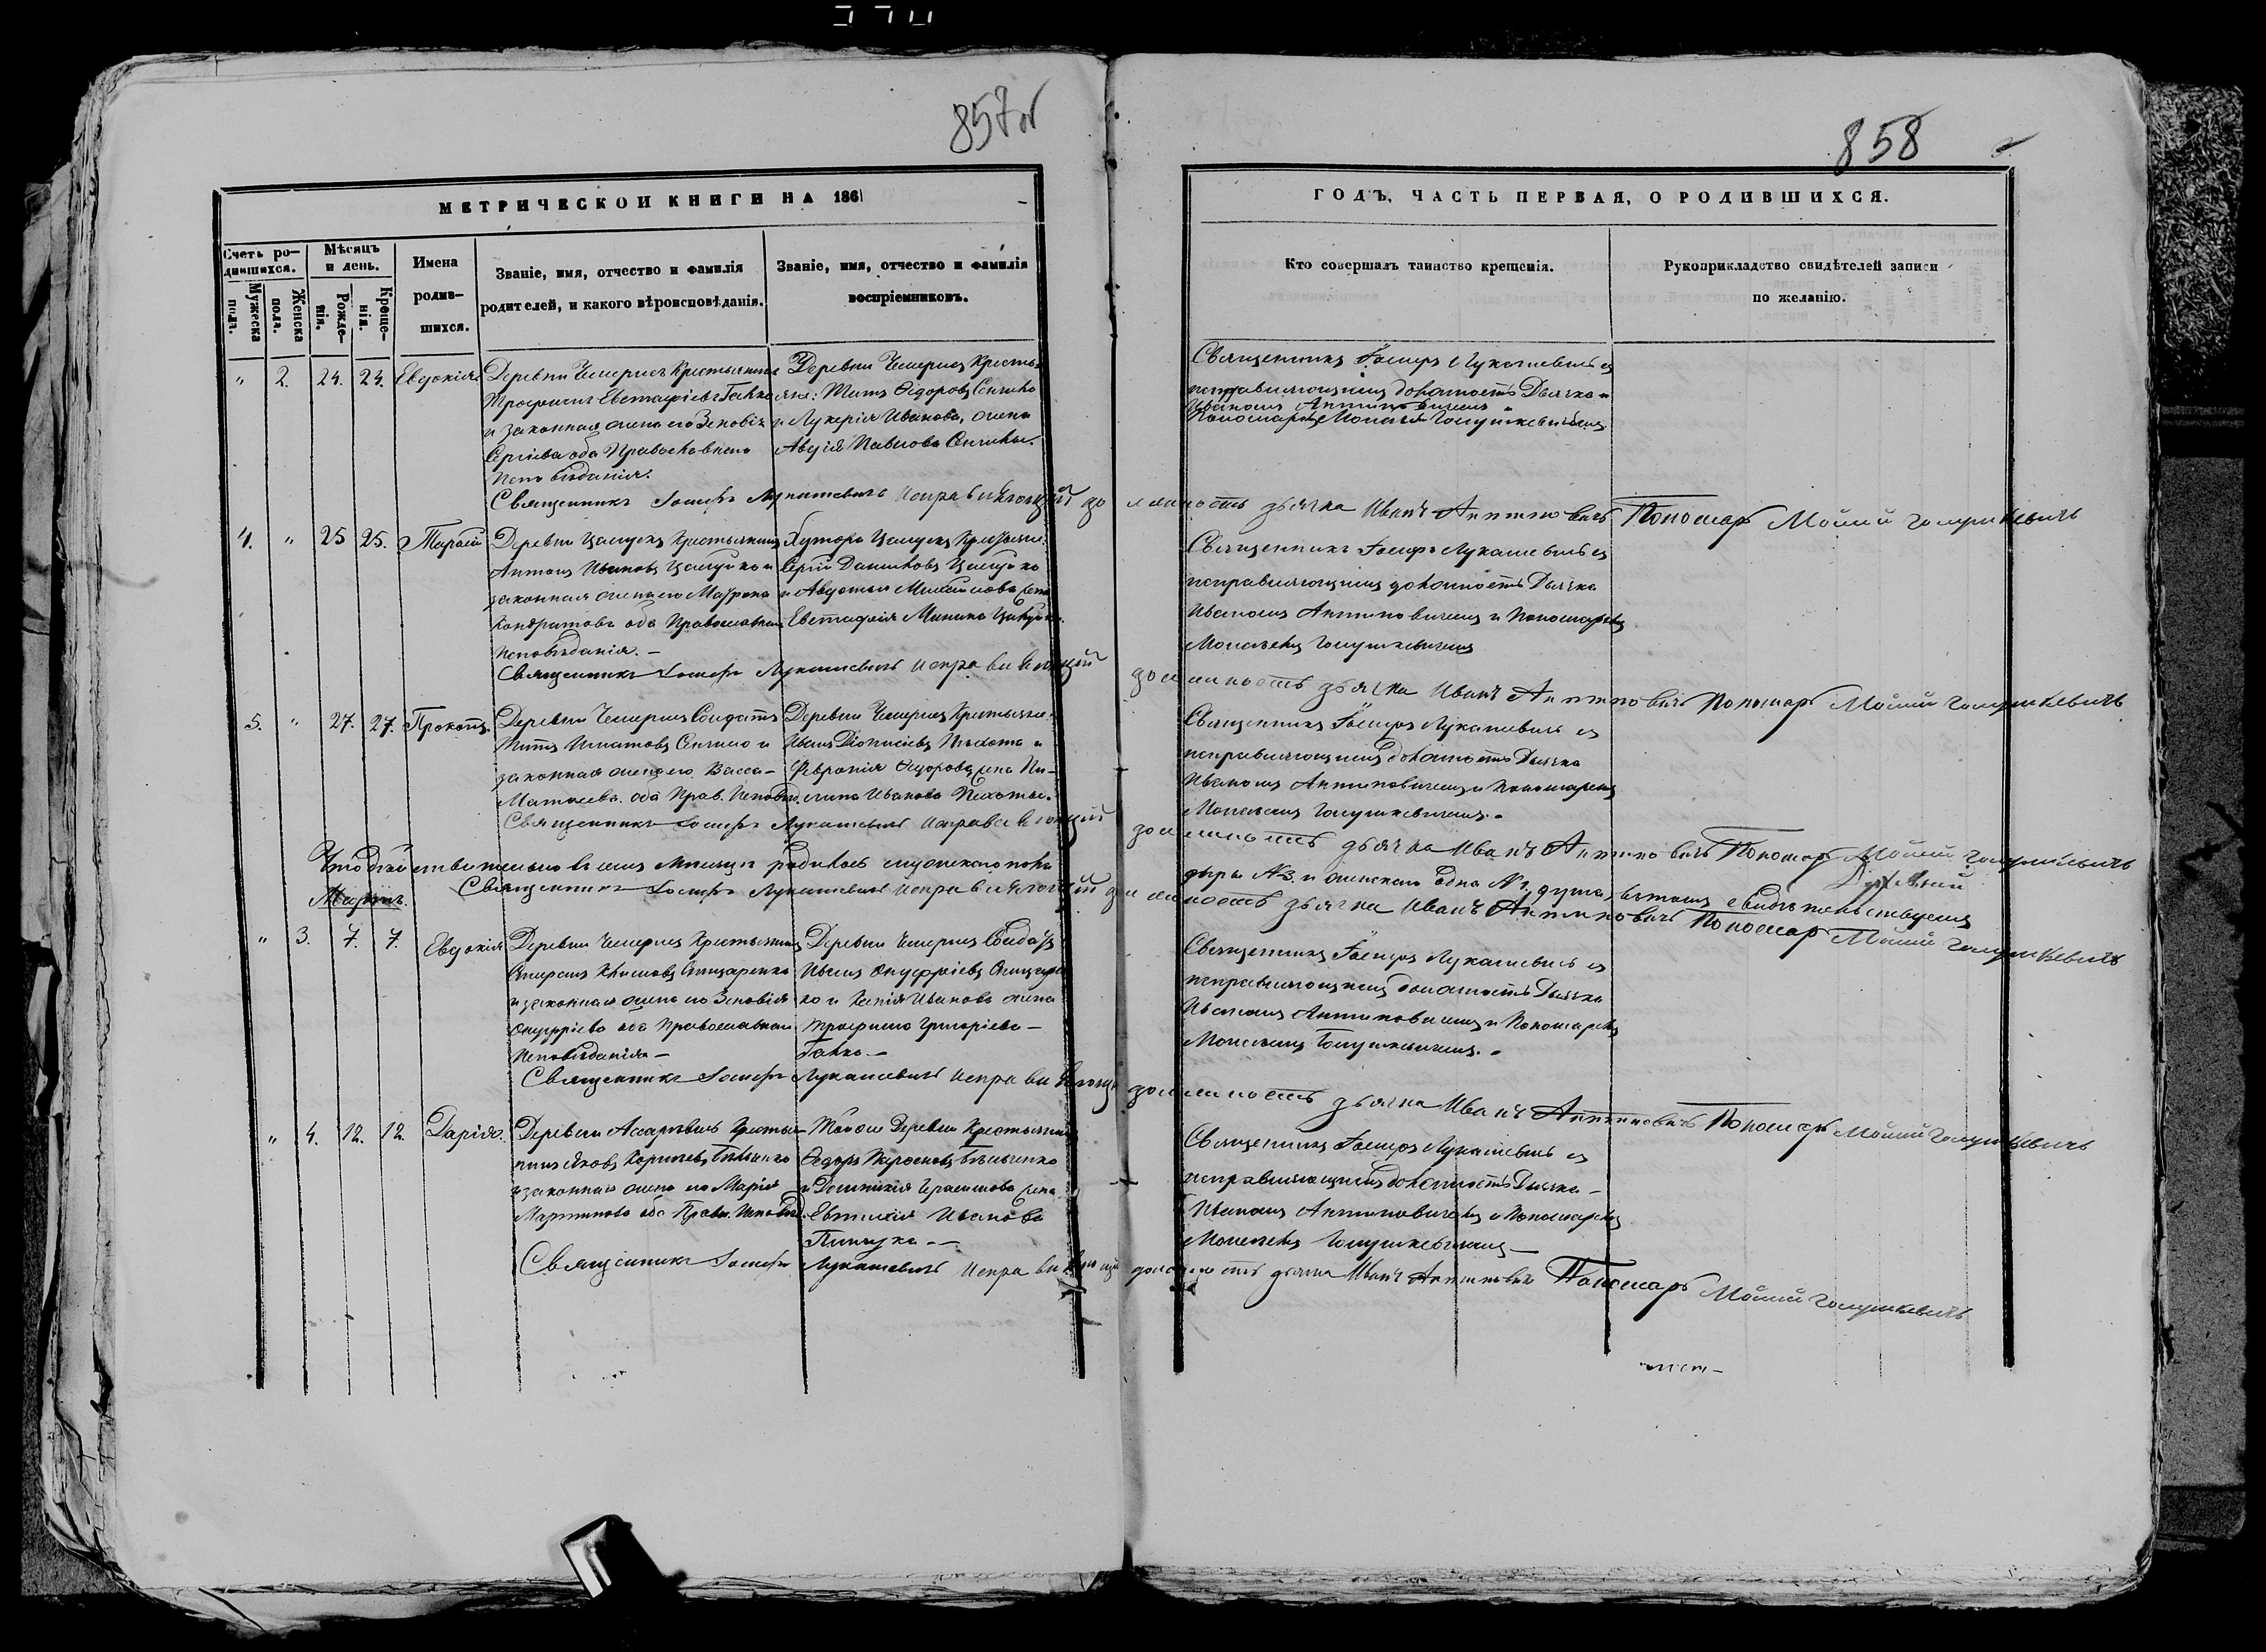 857об
858
МЕТРИЧЕСКОЙ КНИГИ НА 1861
ГОДЪ, ЧАСТЬ ПЕРВАЯ, О РОДИВШИХСЯ.
Счетъ ро-
дившихся.
Мѣсяцъ
и день.
Мужеска
пола.
Женска
пола.
Рожде-
нія.
Креще-
нія.
Имена
родив-
шихся.
Званіе, имя, отчество и фамилія
родителей, и какого вѣроисповѣданія.
Званіе, имя, отчество и фамилія
воспріемниковъ.
Кто совершалъ таинство крещенія.
Рукоприкладство свидѣтелей записи
по желанію.
" 2. 24. 24. Евдокія
Деревни Чемерисъ Крестьянинъ
Трофимъ Евстафіевъ Галко
и законная жена его Зеновія
Сергіева оба Православнаго
Исповѣданія.
Деревни Чемерисъ Кресть-
яне: Титъ Ѳедоровъ
и Лукерія Иванова, жена
Павлова
Священникъ Іосифъ Лукашевичъ съ
исправляющимъ должность Дьячка
Иваномъ Антиповичемъ и
Пономаремъ Моисеемъ Голушкевичемъ
Священникъ Іосифъ Лукашевичъ Исправляющій должность дьячка Иванъ Антиповичъ Пономарь Мойсій Голушкевичъ
4. " 25 25. Тарасій
Деревни Крестьянинъ
Антонъ Ивановъ и
законная жена его Матрона
Кондратова оба Православнаго
Исповѣданія. —
Хутора Крестьяне:
Сергій Даниловъ
и Авдотья Михайлова жена
Евстафія Минина
Священникъ Іосифъ Лукашевичъ съ
исправляющимъ должность Дьячка
Иваномъ Антиповичемъ и Пономаремъ
Моисеемъ Голушкевичемъ
Священникъ Іосифъ Лукашевичъ Исправляющій должность дьячка Иванъ Антиповичъ Пономарь Мойсій Голушкевичъ
5. " 27. 27. Прокопъ.
Деревни Чемерисъ Солдатъ
Титъ Игнатовъ и
законная жена его Васса—
Матвеева. оба Прав. Исповѣд.
Деревни Чемерисъ Крестьяне:
Иванъ Діонисіевъ Пѣхота и
Февронія Ѳедорова жена
Иванова Пехоты.
Священникъ Іосифъ Лукашевичъ съ
исправляющимъ должность Дьячка
Иваномъ Антиповичемъ и Пономаремъ
Моисеемъ Голушкевичемъ.
Священникъ Іосифъ Лукашевичъ Исправляющій должность дьячка Иванъ Антиповичъ Пономарь Мойсій Голушкевичъ
Что дѣйствительно въ семъ Мѣсяцѣ родилось мужескаго пола
№3. и женскаго одна №1. душа, въ томъ свидѣтельствуемъ
Священникъ Іосифъ Лукашевичъ Исправляющій должность дьячка Иванъ Антиповичъ Пономарь Мойсій Голушкевичъ
Мартъ.
" 3. 7. 7. Евдокія
Деревни Чемерисъ Крестьянинъ
Климовъ
и законная жена его Зеновія
Онуфріева оба Православнаго
Исповѣданія —
Деревни Чемерисъ Солдатъ
Иванъ Онуфріевъ
и Ксенія Иванова жена
Трофима Григоріева —
Галко. —
Священникъ Іосифъ Лукашевичъ съ
исправляющимъ должность Дьячка
Иваномъ Антиповичемъ и Пономаремъ
Моисеемъ Голушкевичемъ.
Священникъ Іосифъ Лукашевичъ Исправляющій должность дьячка Иванъ Антиповичъ Пономарь Мойсій Голушкевичъ
" 4. 12. 12. Дарія.
Деревни Крестья-
нинъ Яковъ Корнеевъ
и законная жена его Марія
Мартинова оба Правос. Исповѣд.
Той же Деревни Крестьянинъ
Ѳедоръ
и Герасимова жена
Евтихія Иванова
Пинчука. —
Священникъ Іосифъ Лукашевичъ съ
исправляющимъ должность Дьячка —
Иваномъ Антиповичемъ и Пономаремъ
Моисеемъ Голушкевичемъ —
Священникъ Іосифъ Лукашевичъ Исправляющій должность дьячка Иванъ Антиповичъ Пономарь Мойсій Голушкевичъ